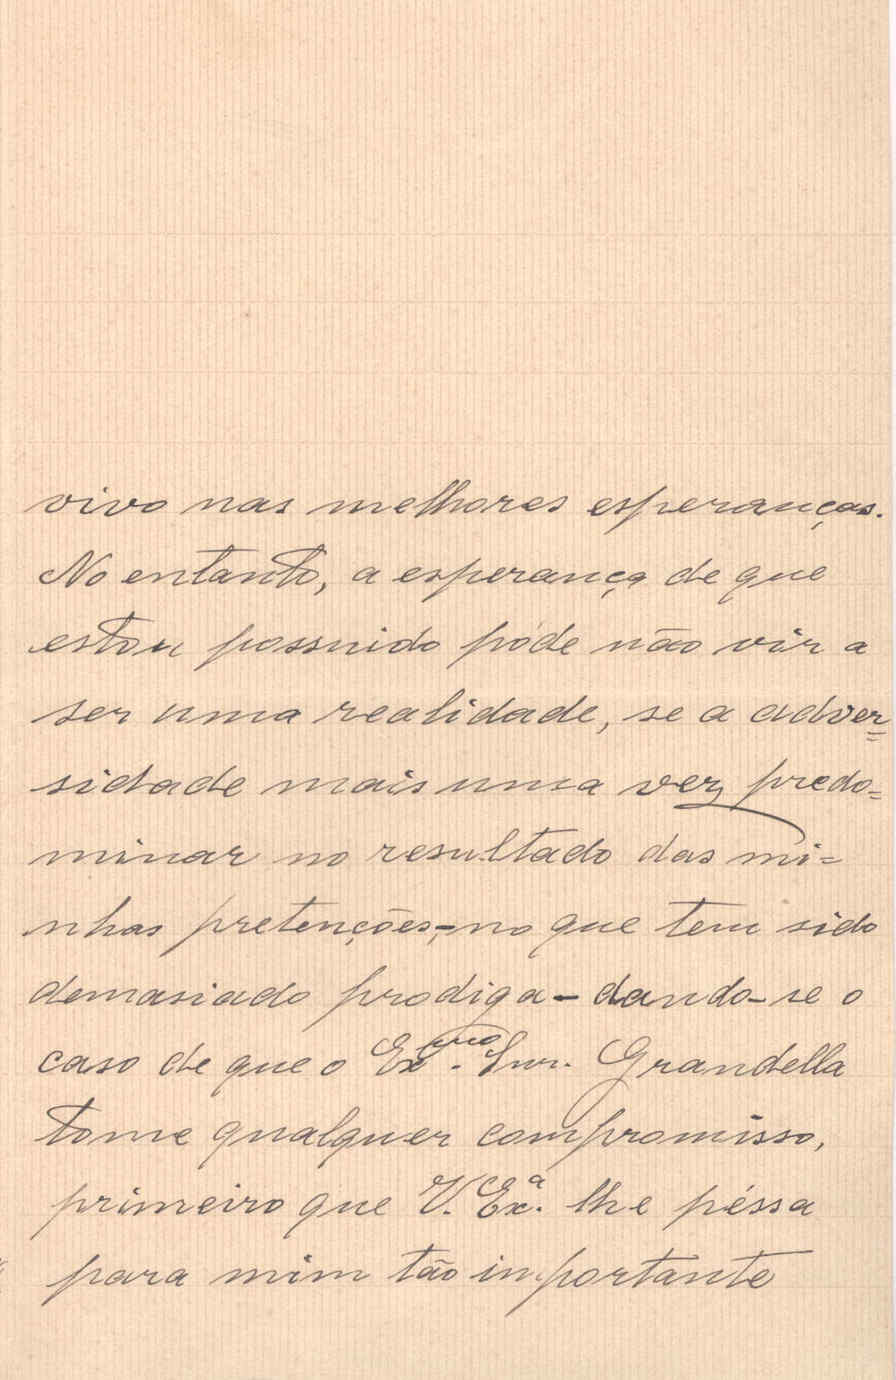 vivo nas melhores esperanças.
No entanto, a esperança de que
estou possuido póde não vir a
ser uma realidade, se a adver=
sidade mais uma vez predo=
minar no resultado das mi=
nhas pretenções,-no que tem sido
demasiado prodiga-dando-se o
caso de que o Exmo. Snr. Grandella
tome qualquer compromisso,
primeiro que V. Exª. lhe péssa
para mim tão importante